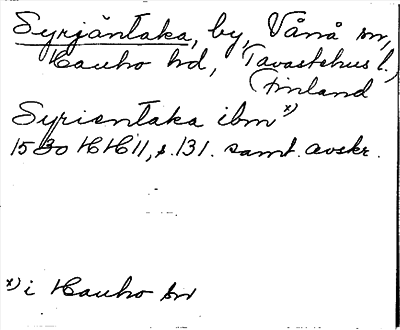 Syrjäntaka, by, Vånå sn,
Hauho hd, Tavastehus l.
(Finland
Syrientaka ibm x)
1530 HH II, s. 131. samt. avskr.
x) i Hauho sn